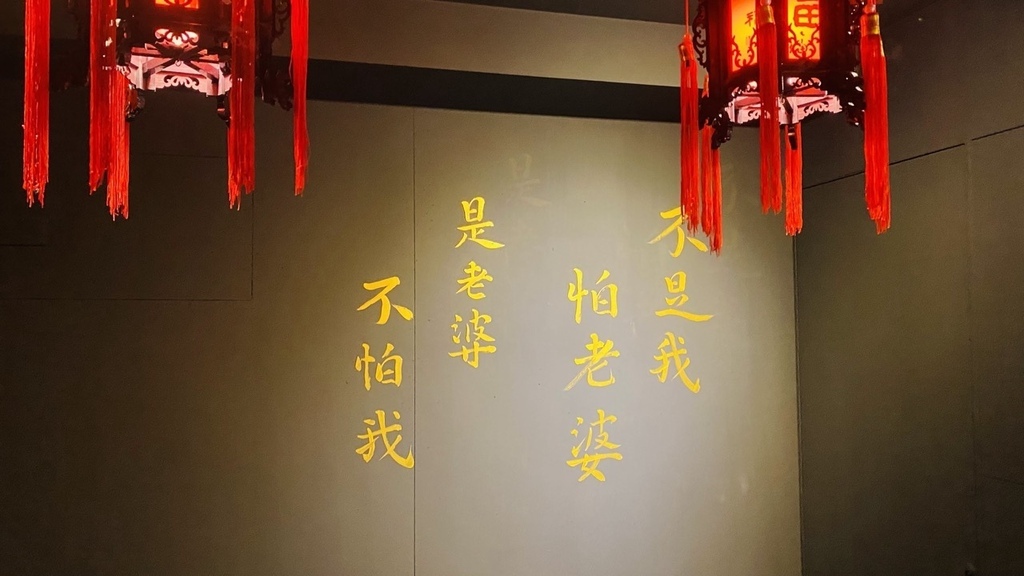 不是我
怕老婆
是老婆
不怕我